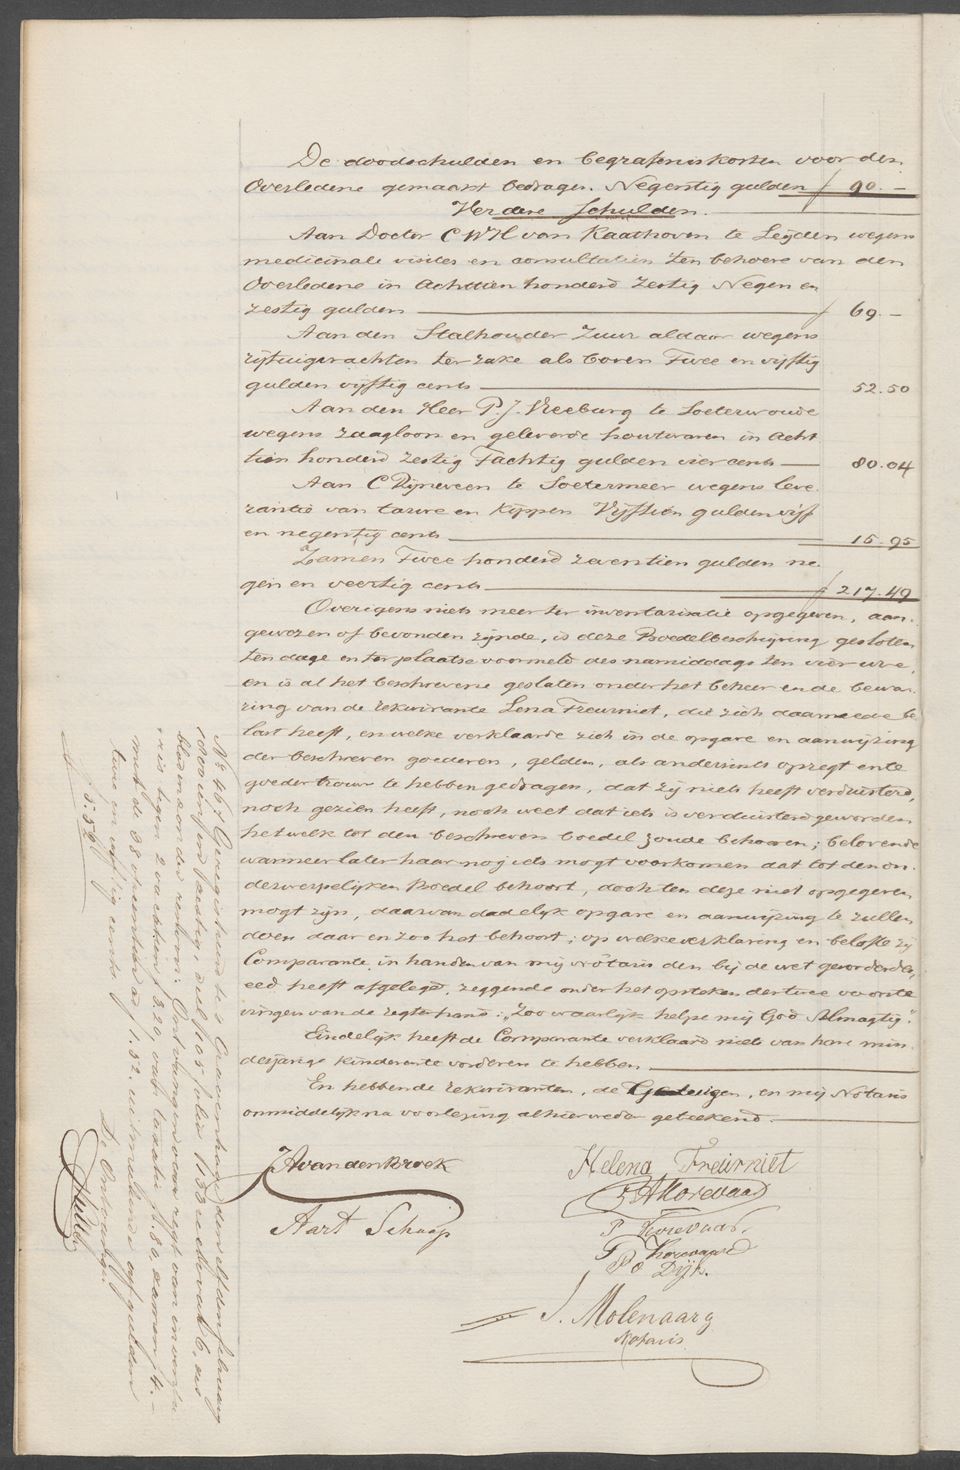 De doodschulden en begrafeniskosten voor den
Overledene gemaakt bedragen. Negentig gulden f 90.-
Verdere Schulden.
Aan Doctor C W H van Kaathoven te Leijden wegens
medicinale visites en consultatien ten behoeve van den
Overledene in Achttien honderd zestig Negen en
zestig gulden f 69.-
Aan den Stalhouder Zuur aldaar wegens
rijtuigvrachten ter zake als boven Twee en vijftig
gulden vijftig cents 52.50
Aan den Heer P. J. Vreeburg te Soeterwoude
wegens zaagloon en geleverde houtwaren in Acht
tien honderd zestig Tachtig gulden vier cents 80.04
Aan C Rijneveen te Soetermeer wegens leve
rantie van tarwe en kippen Vijftien gulden vijf
en negentig cents 15.95
Zamen Twee honderd zeventien gulden ne
gen en veertig cents f 217.49
Overigens niets meer ter inventarisatie opgegeven, aan-
gewezen of bevonden zijnde, is deze Boedelbeschrijving gesloten
ten dage en ter plaatse voormeld des namiddags ten vier ure,
en is al het beschrevene gelaten onder het beheer en de bewa-
ring van de rekwirante Lena Freurniet, die zich daarmede be
last heeft, en welke verklaarde zich in de opgave en aanwijzing
der beschreven goederen, gelden, als anderzints opregt en te
goeder trouw te hebben gedragen, dat zij niets heeft verduisterd,
noch gezien heeft, noch weet dat iets is verduisterd geworden
hetwelk tot den beschreven boedel zoude behooren; belovende
wanneer later haar nog iets mogt voorkomen dat tot den on-
derwerpelijken Boedel behoort, doch ten deze niet opgegeven
mogt zijn, daarvan dadelijk opgave en aanwijzing te zullen
doen daar en zoo het behoort; op welke verklaring en belofte zij
Comparante in handen van mij Notaris den bij de wet gevorderden
eed heeft afgelegd, zeggende onder het opsteken der twee voorste
vingers van de regterhand: "Zoo waarlijk helpe mij God Almagtig".
Eindelijk heeft de Comparante verklaard niets van hare min-
derjarige kinderen te vorderen te hebben.
En hebben de rekwiranten, de Getuigen, en mij Notaris
onmiddelijk na voorlezing alhier weder geteekend.
JA van den Broek
Helena Freurniet
Aart Schaap
P Korevaar.
P Dijk.
J. Molenaar
Notaris
No 467 Geregistreerd te 's Gravenhage den elfden februarij
1800 een en
blad
regt van inventa
ris tegen 2 vacatien f 3.20, van taxatie f .80, zamen f 4.-
met de 38 opcenten ad f 1.52. uitmakende vijf gulden
twee en vijftig cents
f 5.52
De Ontvanger.